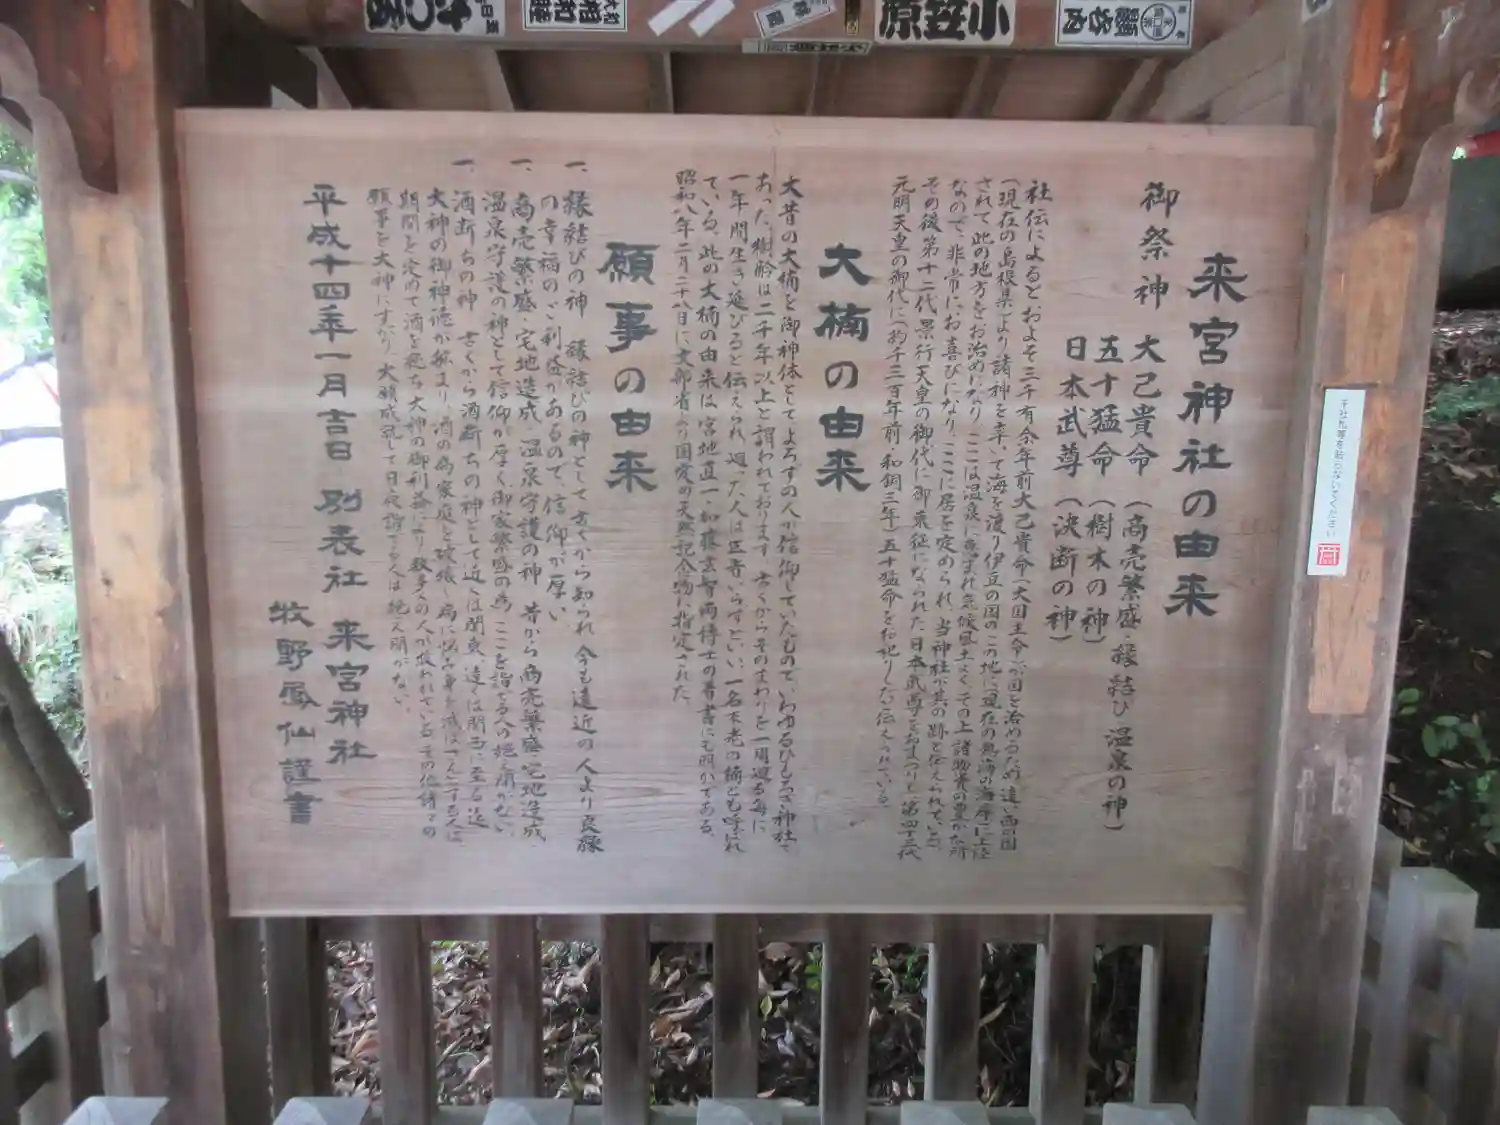 来宮神社の由来
御祭神 大己貴命(商売繁盛・縁結び・温泉の神)
五十猛命(樹木の神)
日本武尊(決断の神)
社伝によると、およそ三千有余年前大己貴命(大国主命)が国を治めるため遠い西の国
(現在の島根県)より諸神を率いて海を渡り伊豆の国のこの地に(現在の熱海の海岸に上陸
されて此の地方をお治めになり、ここは温泉に恵まれ気候風土よくその上諸物資の豊かな所
なので、非常にお喜びになり、ここに居を定められ、当神社が其の跡と伝えられている。
その後第十二代景行天皇の御代に御東征になられた日本武尊をおまつりし第四十三代
元明天皇の御代に(約千三百年前・和銅三年)五十猛命をお祀りしたと伝えられている。
大楠の由来
大昔の大楠を御神体としてよろずの人が信仰していたもので、いわゆるひもろぎ神社で
あった。樹齢は二千年以上と謂われております。古くからそのまわりを一周廻る毎に
一年間生き延びると伝えられ、廻った人は医者いらずといい、一名不老の楠とも呼ばれ
ている。此の大楠の由来は宮地直一、加藤玄智両博士の著書にも明かである。
昭和八年二月二十八日に、文部省より国定の天然記念物に指定された。
願事の由来
一、縁結びの神 縁結びの神として古くから知られ、今も遠近の人より良縁
の幸福のご利益があるので、信仰が厚い
一、商売繁盛・宅地造成・温泉守護の神 昔から商売繁盛・宅地造成
温泉守護の神として信仰が厚く、御家繁盛の為、ここを詣でる人の絶え間がない。
一、酒断ちの神 古くから酒断ちの神として近くは関東、遠くは関西に至る迄
大神の御神徳が拡まり、酒の為家庭を破壊し病に悩み身を滅ぼさんとする人は
期間を定めて酒を絶ち大神の御利益により数多くの人が救われている。その他諸々の
願事を大神にすがり、大願成就して日夜詣でる人は絶え間がない。
平成十四年一月吉日 別表社 来宮神社
牧野鳳仙謹書
千社札等を貼らないでください
小笠原